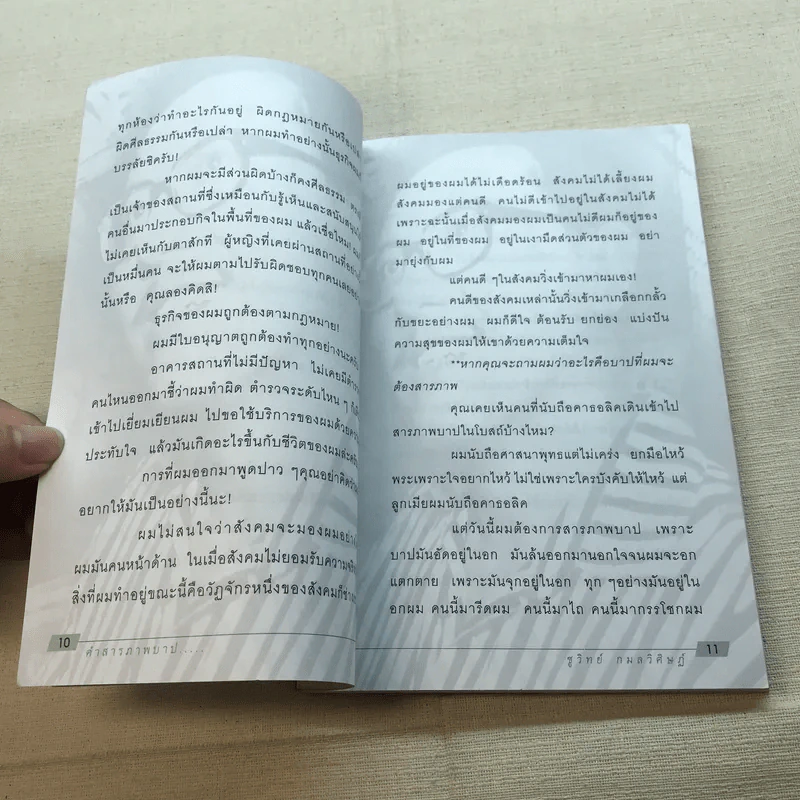 ทุกห้องว่าทำอะไรกันอยู่ ผิดกฎหมายกันหรือเปล่า
ผิดศีลธรรมกันหรือเปล่า หากผมทำอย่างนั้นธุรกิจผม
บรรลัยซิครับ!
หากผมจะมีส่วนผิดบ้างก็คงศีลธรรม
เป็นเจ้าของสถานที่ซึ่งเหมือนกับรู้เห็นและสนับสนุน
คนอื่นมาประกอบกิจในพื้นที่ของผม แล้วเชื่อไหม!
ไม่เคยเห็นกับตาสักที ผู้หญิงที่เคยผ่านสถานที่
เป็นหมื่นคน จะให้ผมตามไปรับผิดชอบทุกคนเลย
นั้นหรือ คุณลองคิดสิ!
ธุรกิจของผมถูกต้องตามกฎหมาย!
ผมมีใบอนุญาตถูกต้องทำทุกอย่าง
อาคารสถานที่ไม่มีปัญหา ไม่เคยมี
คนไหนออกมาชี้ว่าผมทำผิด ตำรวจระดับไหน ๆ
เข้าไปเยี่ยมเยียนผม ไปขอใช้บริการของผมด้วย
ประทับใจ แล้วมันเกิดอะไรขึ้นกับชีวิตของผม
การที่ผมออกมาพูดปาว ๆคุณอย่าคิดว่า
อยากให้มันเป็นอย่างนี้นะ!
ผมไม่สนใจว่าสังคมจะมองผม
ผมมันคนหน้าด้าน ในเมื่อสังคมไม่ยอมรับความจริง
สิ่งที่ผมทำอยู่ขณะนี้คือวัฏจักรหนึ่งของสังคม
10
คำสารภาพบาป.....
ผมอยู่ของผมได้ไม่เดือดร้อน สังคมไม่ได้เลี้ยงผม
สังคมมองแต่คนดี คนไม่ดีเข้าไปอยู่ในสังคมไม่ได้
เพราะฉะนั้นเมื่อสังคมมองผมเป็นคนไม่ดีผมก็อยู่ของ
ผม อยู่ในที่ของผม อยู่ในเงามืดส่วนตัวของผม อย่า
มายุ่งกับผม
แต่คนดี ๆในสังคมวิ่งเข้ามาหาผมเอง!
คนดีของสังคมเหล่านั้นวิ่งเข้ามาเกลือกกลั้ว
กับขยะอย่างผม ผมก็ดีใจ ต้อนรับ ยกย่อง แบ่งปัน
ความสุขของผมให้เขาด้วยความเต็มใจ
**หากคุณจะถามผมว่าอะไรคือบาปที่ผมจะ
ต้องสารภาพ
คุณเคยเห็นคนที่นับถือคาธอลิคเดินเข้าไป
สารภาพบาปในโบสถ์บ้างไหม?
ผมนับถือศาสนาพุทธแต่ไม่เคร่ง ยกมือไหว้
พระเพราะใจอยากไหว้ ไม่ใช่เพราะใครบังคับให้ไหว้ แต่
ลูกเมียผมนับถือคาธอลิค
แต่วันนี้ผมต้องการสารภาพบาป เพราะ
บาปมันอัดอยู่ในอก มันล้นออกมานอกใจจนผมจะอก
แตกตาย เพราะมันจุกอยู่ในอก ทุก ๆอย่างมันอยู่ใน
อกผม คนนี้มารีดผม คนนี้มาไถ คนนี้มากรรโชกผม
ชูวิทย์ กมลวิศิษฎ์
11